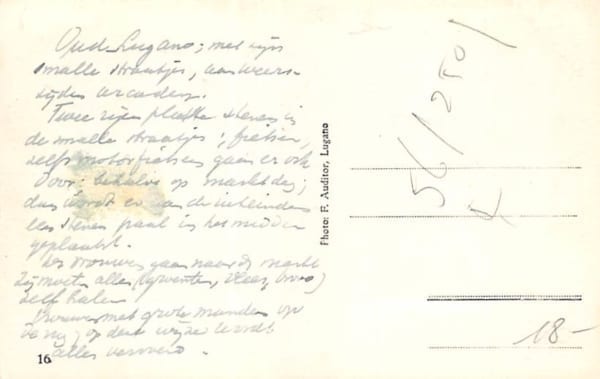 Oud Lugano; met zijn
smalle straatjes, aan weers-
zijden arcaden.
Twee rijen platte stenen in
de smalle straatjes; fietsen,
zelfs motorfietsen gaan er ook
door; behalve op marktdag;
dan wordt er aan de uiteinden
een stenen paal in het midden
geplaatst.
De vrouwen gaan naar de markt
Zij moeten alles (groenten, vlees, brood)
zelf halen
Vrouwen met grote manden op
de rug; op deze wijze wordt
alles vervoerd.
16
Photo: F. Auditor, Lugano
56/250/
18-